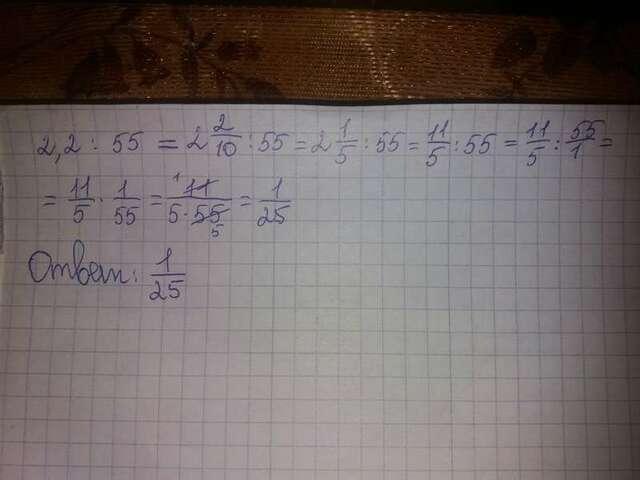 2,2 : 55 = 2 2/10 : 55 = 2 1/5 : 55 = 11/5 : 55 = 11/5 : 55/1 =
= 11/5 · 1/55 = 1 11/5 · 55 5 = 1/25
Ответ: 1/25